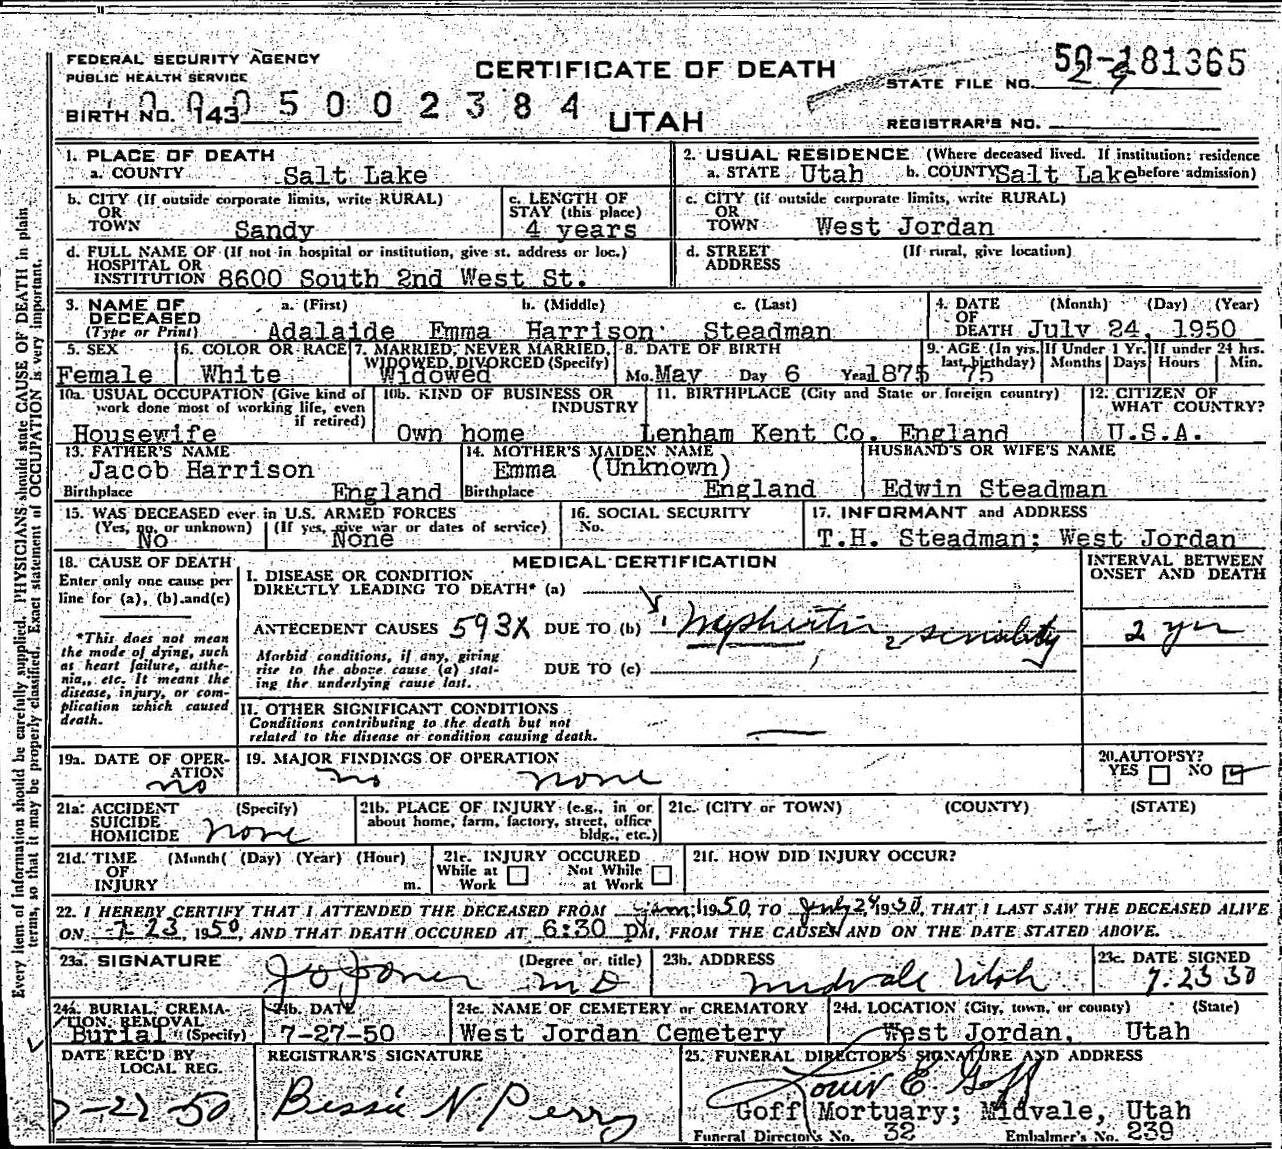 FEDERAL SECURITY AGENCY
PUBLIC HEALTH SERVICE
CERTIFICATE OF DEATH
UTAH
STATE FILE NO. 181365
BIRTH NO. 143 0005002384
REGISTRAR'S NO.
Every item of information should be carefully supplied. PHYSICIANS should state CAUSE OF DEATH in plain
terms, so that it may be properly classified. Exact statement of OCCUPATION is very important.
1. PLACE OF DEATH
a. COUNTY Salt Lake
2. USUAL RESIDENCE (Where deceased lived. If institution: residence
a. STATE Utah b. COUNTY Salt Lake before admission)
b. CITY (If outside corporate limits, write RURAL)
OR
TOWN Sandy
c. LENGTH OF
STAY (this place)
4 years
c. CITY (if outside corporate limits, write RURAL)
OR
TOWN West Jordan
d. FULL NAME OF (If not in hospital or institution, give st. address or loc.)
HOSPITAL OR
INSTITUTION 8600 South 2nd West St.
d. STREET (If rural, give location)
ADDRESS
3. NAME OF DECEASED
(Type or Print)
a. (First) b. (Middle) c. (Last)
Adalaide Emma Harrison Steadman
4. DATE OF DEATH (Month) (Day) (Year)
July 24, 1950
5. SEX
Female
6. COLOR OR RACE
White
7. MARRIED, NEVER MARRIED,
WIDOWED, DIVORCED (Specify)
Widowed
8. DATE OF BIRTH
Mo. May Day 6 Year 1875
9. AGE (In yrs. last birthday) 75
If Under 1 Yr. Months Days
If under 24 hrs. Hours Min.
10a. USUAL OCCUPATION (Give kind of
work done most of working life, even
if retired)
Housewife
10b. KIND OF BUSINESS OR
INDUSTRY
Own home
11. BIRTHPLACE (City and State or foreign country)
Lenham Kent Co. England
12. CITIZEN OF
WHAT COUNTRY?
U.S.A.
13. FATHER'S NAME
Jacob Harrison
Birthplace England
14. MOTHER'S MAIDEN NAME
Emma (Unknown)
Birthplace England
HUSBAND'S OR WIFE'S NAME
Edwin Steadman
15. WAS DECEASED ever in U.S. ARMED FORCES
(Yes, no, or unknown) (If yes, give war or dates of service)
No None
16. SOCIAL SECURITY
No.
17. INFORMANT and ADDRESS
T.H. Steadman; West Jordan
18. CAUSE OF DEATH
Enter only one cause per
line for (a), (b) and (c)
*This does not mean
the mode of dying, such
as heart failure, asthe-
nia, etc. It means the
disease, injury, or com-
plication which caused
death.
MEDICAL CERTIFICATION
I. DISEASE OR CONDITION
DIRECTLY LEADING TO DEATH* (a)
ANTECEDENT CAUSES 593X DUE TO (b)
Morbid conditions, if any, giving
rise to the above cause (a) stat-
ing the underlying cause last.
DUE TO (c)
II. OTHER SIGNIFICANT CONDITIONS
Conditions contributing to the death but not
related to the disease or condition causing death.
INTERVAL BETWEEN
ONSET AND DEATH
2 yrs
19a. DATE OF OPER-
ATION
no
19. MAJOR FINDINGS OF OPERATION
no none
20. AUTOPSY?
YES NO
21a. ACCIDENT (Specify)
SUICIDE
HOMICIDE none
21b. PLACE OF INJURY (e.g., in or
about home, farm, factory, street, office
bldg., etc.)
21c. (CITY or TOWN) (COUNTY) (STATE)
21d. TIME (Month) (Day) (Year) (Hour)
OF
INJURY m.
21e. INJURY OCCURED
While at Work Not While at Work
21f. HOW DID INJURY OCCUR?
22. I HEREBY CERTIFY THAT I ATTENDED THE DECEASED FROM Jan 1 1950, TO July 24 1950, THAT I LAST SAW THE DECEASED ALIVE
ON 7-23, 1950, AND THAT DEATH OCCURED AT 6:30 pM, FROM THE CAUSES AND ON THE DATE STATED ABOVE.
23a. SIGNATURE (Degree or title)
M D
23b. ADDRESS
Midvale Utah
23c. DATE SIGNED
24a. BURIAL, CREMA-
TION, REMOVAL
Burial (Specify)
24b. DATE
7-27-50
24c. NAME OF CEMETERY or CREMATORY
West Jordan Cemetery
24d. LOCATION (City, town, or county) (State)
West Jordan, Utah
DATE REC'D BY
LOCAL REG.
REGISTRAR'S SIGNATURE
Bessie N. Perry
25. FUNERAL DIRECTOR'S SIGNATURE AND ADDRESS
Louis E. Goff
Goff Mortuary; Midvale, Utah
Funeral Director's No. 32 Embalmer's No. 239